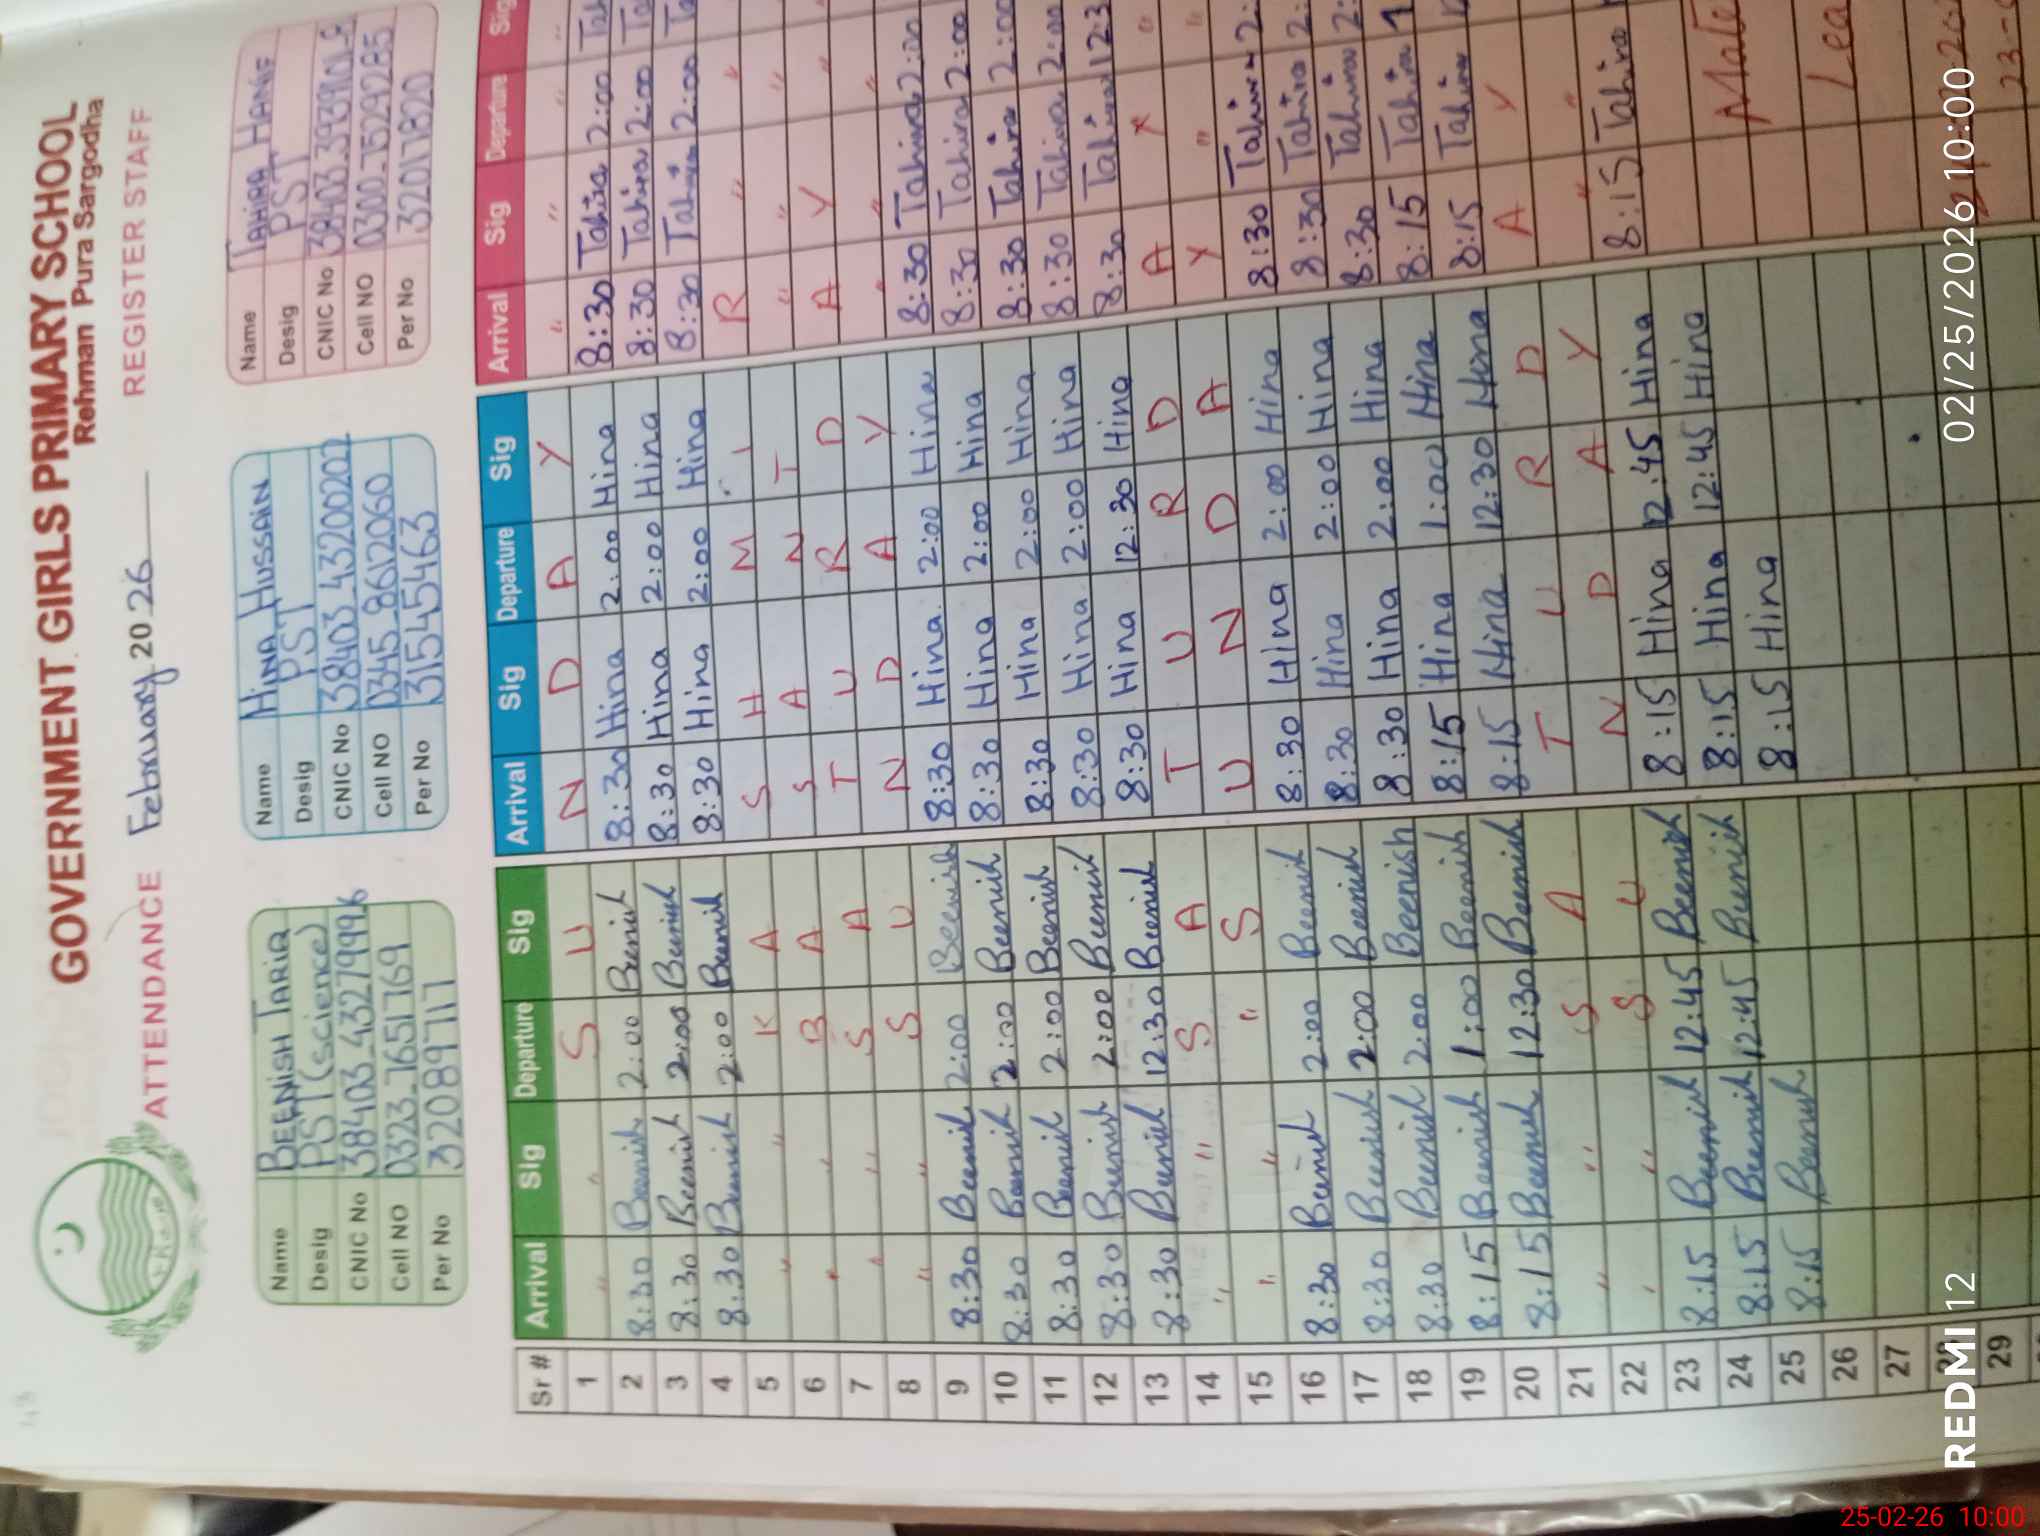 GOVERNMENT GIRLS PRIMARY SCHOOL
Rehman Pura Sargodha
ATTENDANCE February 2026 REGISTER STAFF
Name BEENISH TARIQ
Desig PST (science)
CNIC No 38403_4327999_6
Cell NO 0323_7651769
Per No 32089717
Name HINA HUSSAIN
Desig PST
CNIC No 38403_4320020_2
Cell NO 0345_8612060
Per No 31545463
Name TAHIRA HANIF
Desig PST
CNIC No 38403_3939101_8
Cell NO 0300_7529285
Per No 32017820
Sr # Arrival Sig Departure Sig Arrival Sig Departure Sig Arrival Sig Departure Sig
1 " " S U N D A Y " " " "
2 8:30 Beenish 2:00 Beenish 8:30 Hina 2:00 Hina 8:30 Tahira 2:00 Tah
3 8:30 Beenish 2:00 Beenish 8:30 Hina 2:00 Hina 8:30 Tahira 2:00 Ta
4 8:30 Beenish 2:00 Beenish 8:30 Hina 2:00 Hina 8:30 Tahira 2:00 Ta
5 " " K A S H M I R " "
6 " " B A S A N T " " "
7 " " S A T U R D A Y "
8 " " S U N D A Y " " "
9 8:30 Beenish 2:00 Beenish 8:30 Hina 2:00 Hina 8:30 Tahira 2:00
10 8:30 Beenish 2:00 Beenish 8:30 Hina 2:00 Hina 8:30 Tahira 2:00
11 8:30 Beenish 2:00 Beenish 8:30 Hina 2:00 Hina 8:30 Tahira 2:00
12 8:30 Beenish 2:00 Beenish 8:30 Hina 2:00 Hina 8:30 Tahira 2:00
13 8:30 Beenish 12:30 Beenish 8:30 Hina 12:30 Hina 8:30 Tahira 12:3
14 " " S A T U R D A Y "
15 " " " S U N D A Y " "
16 8:30 Beenish 2:00 Beenish 8:30 Hina 2:00 Hina 8:30 Tahira 2:
17 8:30 Beenish 2:00 Beenish 8:30 Hina 2:00 Hina 8:30 Tahira 2:
18 8:30 Beenish 2:00 Beenish 8:30 Hina 2:00 Hina 8:30 Tahira 2:
19 8:15 Beenish 1:00 Beenish 8:15 Hina 1:00 Hina 8:15 Tahira 1
20 8:15 Beenish 12:30 Beenish 8:15 Hina 12:30 Hina 8:15 Tahira
21 " " S A T U R D A Y
22 " " S U N D A Y " "
23 8:15 Beenish 12:45 Beenish 8:15 Hina 12:45 Hina 8:15 Tahira
24 8:15 Beenish 12:45 Beenish 8:15 Hina 12:45 Hina
25 8:15 Beenish 8:15 Hina Mate
26
27 Lea
28
29 23-
REDMI 12 02/25/2026 10:00
25-02-26 10:00